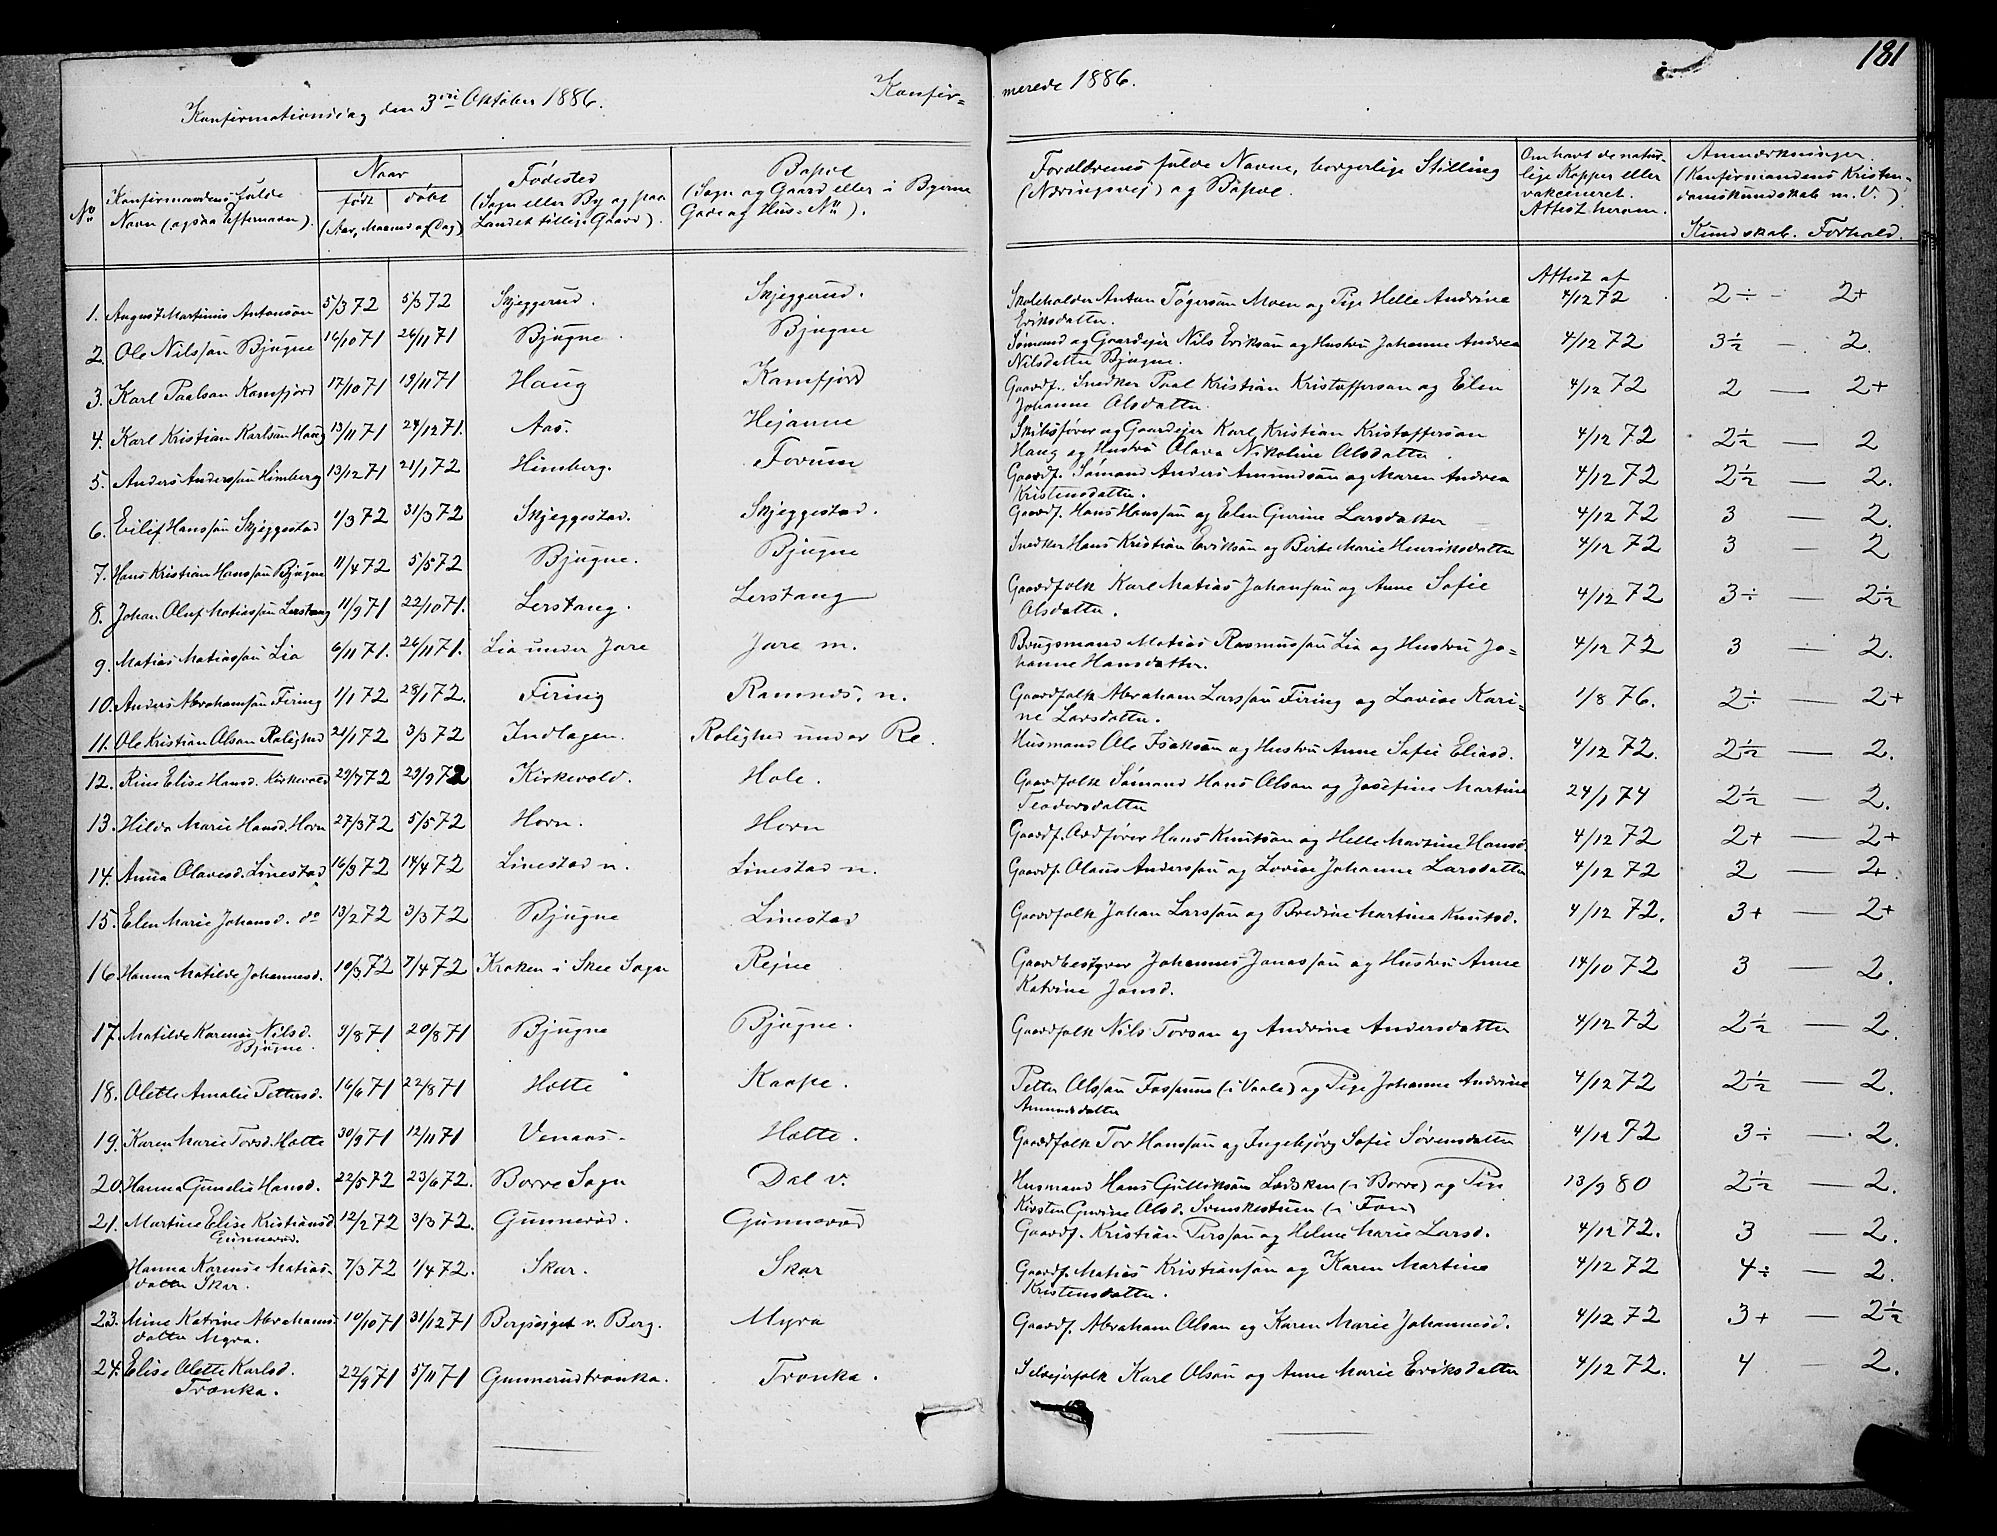 181
Konfirmationsdag den 3die Oktober 1886.
Konfir-
merede 1886.
No
Konfirmandens fulde
Navn (ogsaa Efternavn).
Naar
født
døbt
(Aar, Maaned og Dag)
Fødested
(Sogn eller By og paa
Landet tillige Gaard).
Bopæl
(Sogn og Gaard eller i Byerne
Gade og Hus-No).
Forældrenes fulde Navne, borgerlige Stilling
(Næringsvej) og Bopæl.
Om havt de natur-
lige Kopper eller
vakcineret.
Attest herom.
Anmærkninger.
(Konfirmandens Kristen-
domskundskab m. V.)
Kundskab. Forhold.
Attest af
1. August Martinius Antonsøn 5/3 72 5/5 72 Skjeggerud. Skjeggerud. Skoleholder Anton Tøgersøn Moen og Pige Helle Andrine 4/12 72 2÷ - 2+
Eriksdatter.
2. Ole Nilssøn Bjugne 16/10 71 26/11 71 Bjugne Bjugne Sømand og Gaardejer Nils Eriksøn og Hustru Johanne Andrea 4/12 72 3½ - 2.
Nilsdatter Bjugne.
3. Karl Paalsøn Kamfjord 17/10 71 19/11 71 Haug Kamfjord Gaardf. Snedker Paal Kristian Kristoffersøn og Elen 4/12 72 2 — 2+
Johanne Olsdatter.
4. Karl Kristian Karlsøn Haug 13/11 71 24/12 71. Aas. Hejanne Skibsfører og Gaardejer Karl Kristian Kristoffersøn 4/12 72 2½ — 2
Haug og Hustru Olava Nikoline Olsdatter.
5. Anders Anderssøn Himberg 13/12 71 21/1 72 Himberg. Forum Gaardf. Sømand Anders Amundsøn og Maren Andrea 4/12 72 2½ — 2.
Kristensdatter.
6. Eilif Hanssøn Skjeggestad 1/3 72 31/3 72 Skjeggestad. Skjeggestad. Gaardf. Hans Hanssøn og Elen Gurine Larsdatter 4/12 72 3 — 2.
7. Hans Kristian Hanssøn Bjugne 11/4 72 5/5 72 Bjugne. Bjugne Snedker Hans Kristian Eriksøn og Birte Marie Henriksdatter 4/12 72 3 - 2
8. Johan Oluf Matiassøn Lerstang 11/9 71 22/10 71. Lerstang. Lerstang Gaardfolk Karl Matias Johansøn og Anne Sofie 4/12 72 3÷ — 2½
Olsdatter.
9. Matias Matiassøn Lia 6/11 71. 26/11 71. Lia under Jare Jare m. Brugsmand Matias Rasmussøn Lia og Hustru Jo- 4/12 72 3 — 2.
hanne Hansdatter.
10. Anders Abrahamsøn Firing 1/1 72 28/1 72. Firing Ramnes. n. Gaardfolk Abraham Larssøn Firing og Lovise Kari- 1/8 76. 2÷ — 2+
ne Larsdatter.
11. Ole Kristian Olsøn Rolighed 21/1 72 3/3 72 Indlagen. Rolighed under Re. Husmand Ole Isaksøn og Hustru Anne Sofie Eliasd. 4/12 72. 2½ — 2.
12. Rine Elise Hansd. Kirkevold 29/7 72 29/9 72 Kirkevold. Hole. Gaardfolk Sømand Hans Olsøn og Josefine Martine 24/1 74 2½ — 2.
Teodorsdatter
13. Hilda Marie Hansd. Horn 27/3 72 5/5 72 Horn. Horn Gaardf. Ordfører Hans Knutsøn og Helle Martine Hansd. 4/12 72 2+ — 2+
14. Anna Olavesd. Linestad 16/3 72 14/4 72 Linestad n. Linestad n. Gaardf. Olaus Anderssøn og Lovise Johanne Larsdatter 4/12 72 2 — 2+
15. Elen Marie Johansd. do 13/2 72 3/3 72 Bjugne Linestad Gaardfolk Johan Larssøn og Bredine Martine Knutsd. 4/12 72. 3+ — 2+
16. Hanna Matilde Johannesd. 10/3 72 7/4 72 Kroken i Skee Sogn Rejne Gaardbestyrer Johannes Jonassøn og Hustru Anne 14/10 72 3 — 2.
Katrine Jonsd.
17. Matilde Karense Nilsd. 9/8 71 20/8 71 Bjugne Bjugne. Gaardfolk Nils Torsøn og Andrine Andersdatter 4/12 72 2½ — 2.
Bjugne.
18. Olette Amalie Pettersd. 16/6 71 22/8 71 Hotte Kaape. Petter Olssøn Fossnum (i Vaale) og Pige Johanne Andrine 4/12 72 2½ — 2.
Amundsdatter
19. Karen Marie Torsd. Hotte 30/9 71 12/11 71 Venaas. Hotte. Gaardfolk Tor Hanssøn og Ingebjørg Sofie Sørensdatter 4/12 72 3÷ — 2.
20. Hanna Gunelia Hansd. 22/5 72 23/6 72. Borre Sogn Dal v. Husmand Hans Gulliksøn (i Borre) og Pige 13/9 80 2½ — 2.
Kirsten Gurine Olsd. Svenskestuen (i Fon)
21. Martine Elise Kristiansd. 12/2 72 3/3 72. Gunnerød. Gunnerød Gaardf. Kristian Perssøn og Helene Marie Larsd. 4/12 72. 3 — 2.
Gunnerød.
Hanna Karense Matias- 7/3 72 1/4 72. Skar. Skar Gaardf. Matias Kristiansøn og Karen Martine 4/12 72 4÷ — 2.
datter Skar. Kristensdatter.
23. Mina Katrine Abrahams- 10/10 71 31/12 71 Bergseiget v. Berg. Myra Gaardf. Abraham Olsøn og Karen Marie Johannesd. 4/12 72 3+ — 2½
datter Myra.
24. Elise Olette Karlsd. 22/9 71 5/11 71 Gunnerudtronka. Tronka. Selvejerfolk Karl Olsøn og Anne Marie Eriksdatter 4/12 72. 4 — 2.
Tronka.